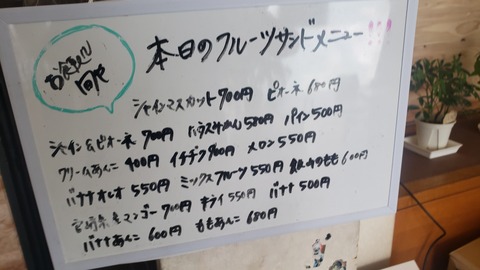 本日のフルーツサンドメニュー!!!
シャインマスカット700円 ピオーネ680円
シャイン&ピオーネ 700円 ハウスみかん580円 パイン500円
クリームあんこ 400円 イチヂク700円 メロン550円
バナナオレオ 550円 ミックスフルーツ 550円 もも 600円
宮崎県産マンゴー700円 キウイ550円 バナナ500円
バナナあんこ 600円 ももあんこ 680円